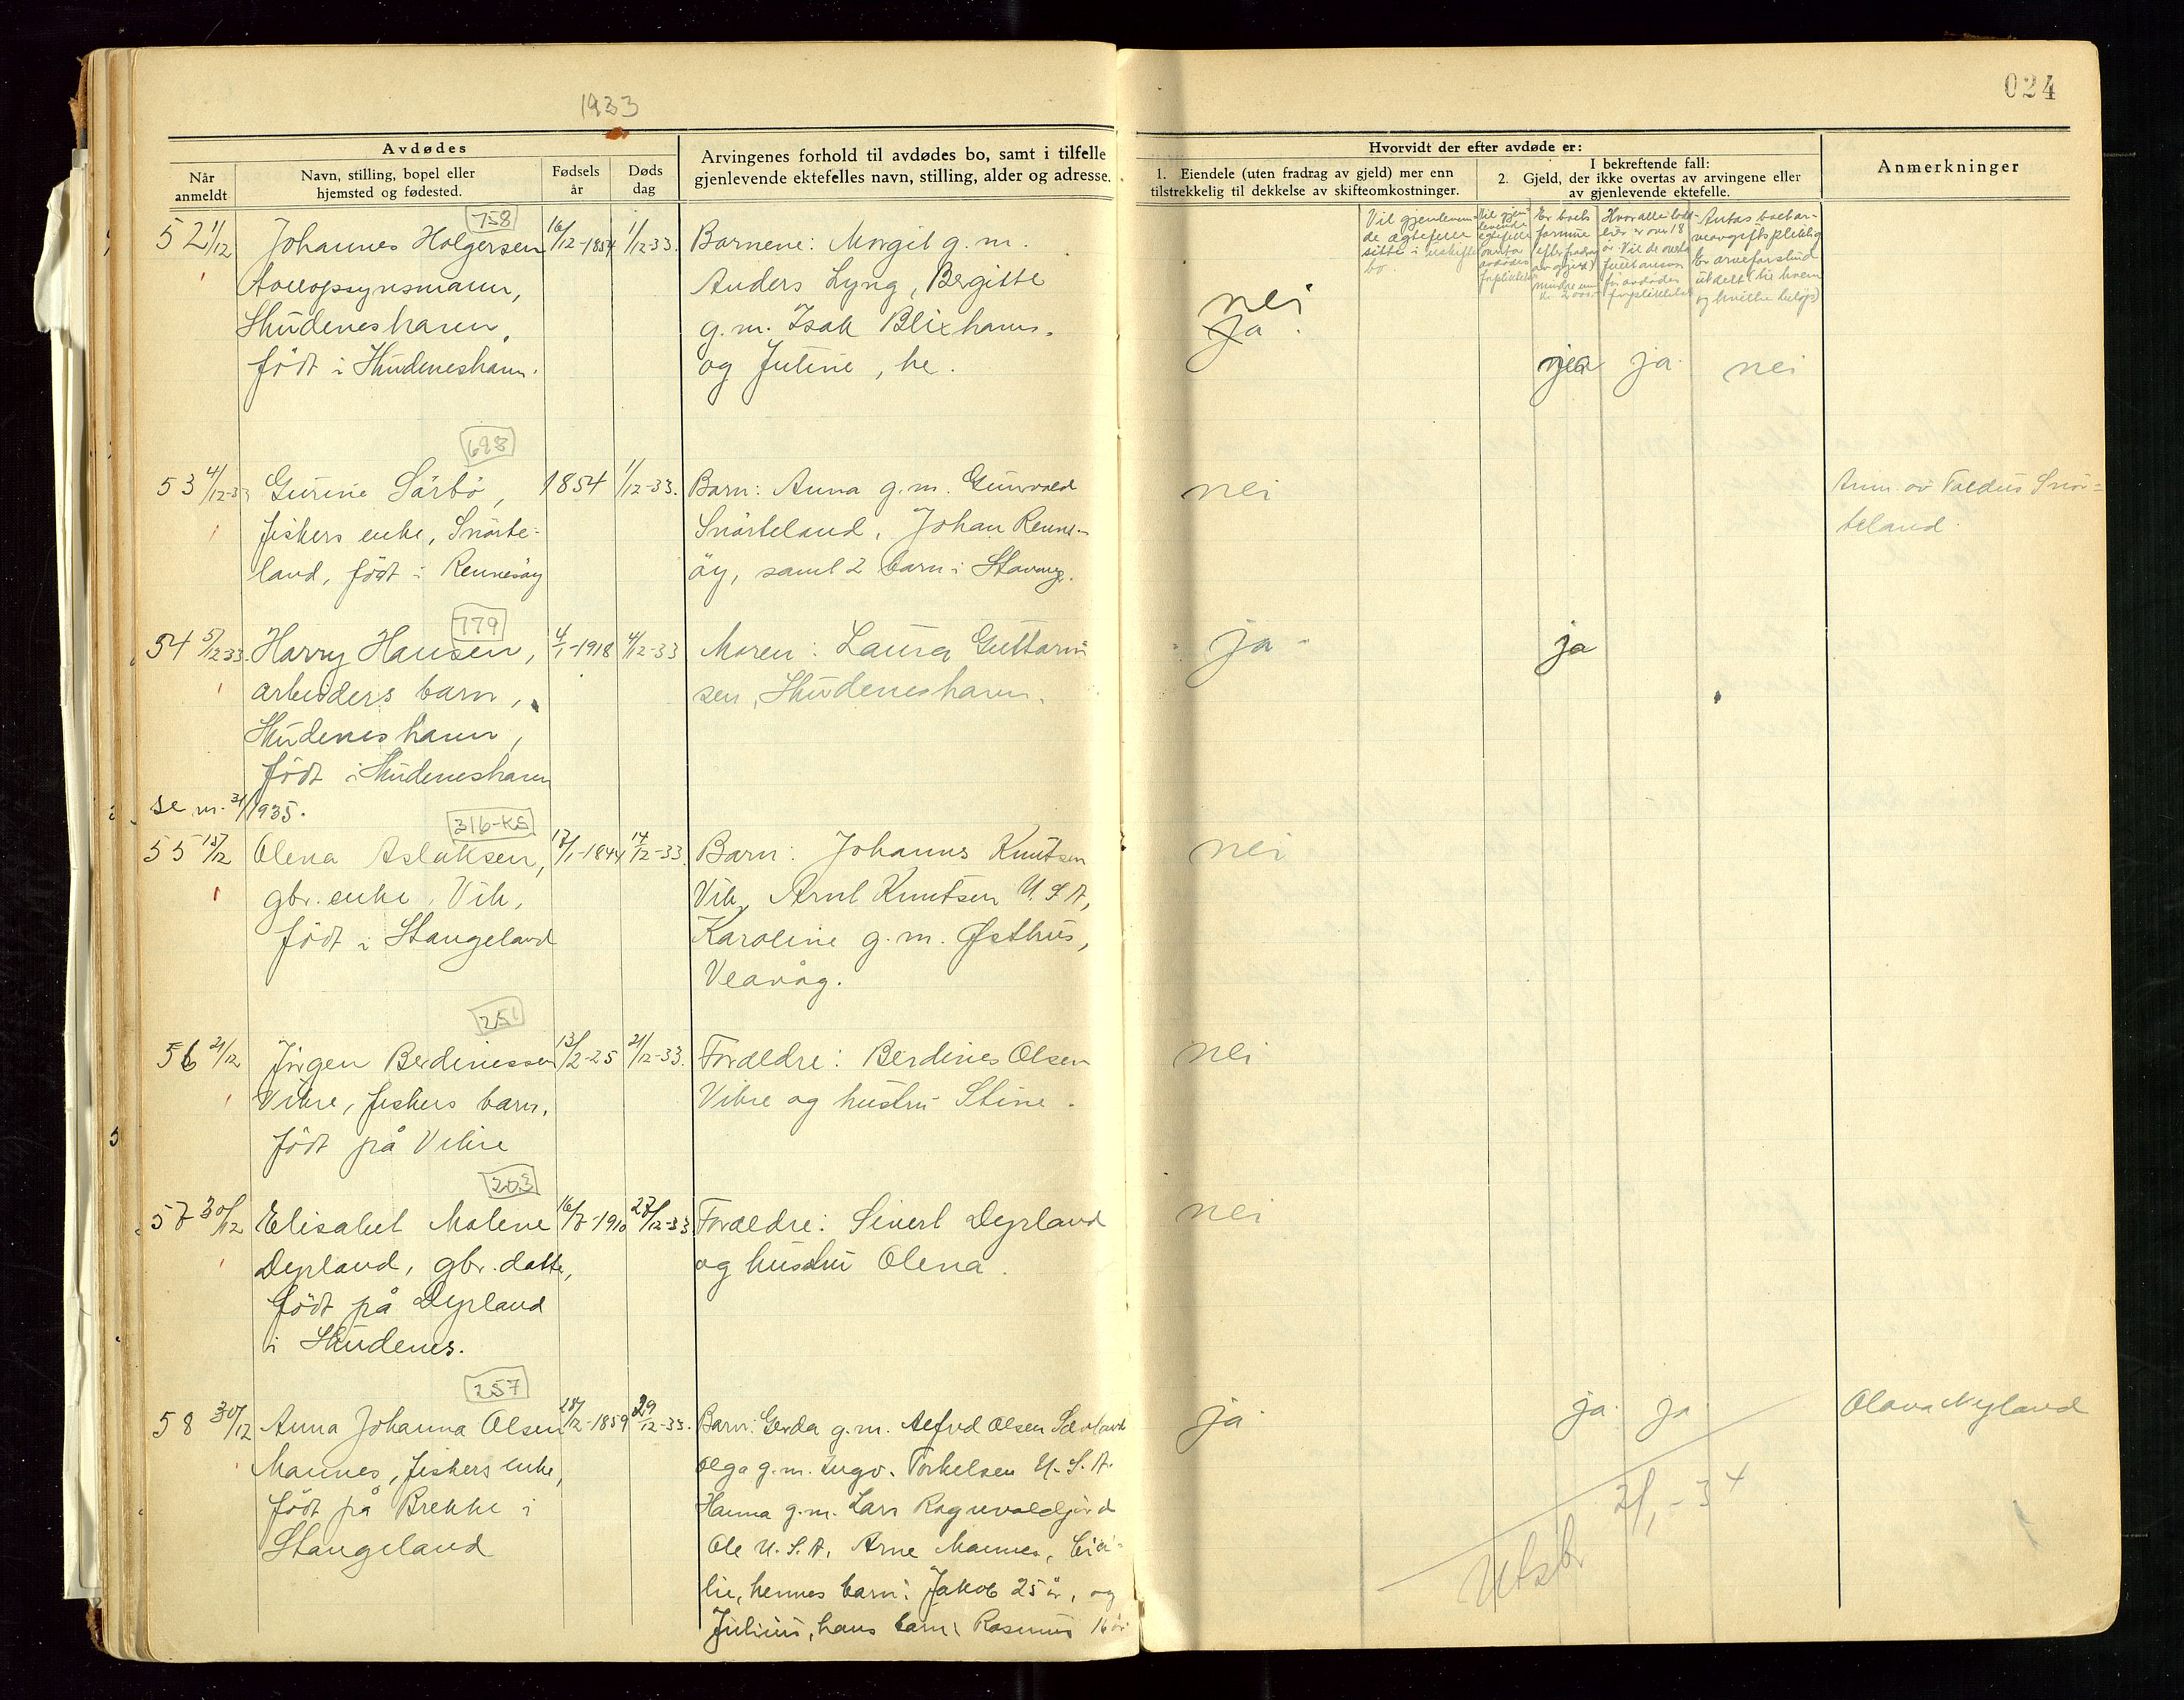 1933
024
Avdødes
Når
anmeldt
Navn, stilling, bopel eller
hjemsted og fødested.
Fødsels
år
Døds
dag
Arvingenes forhold til avdødes bo, samt i tilfelle
gjenlevende ektefelles navn, stilling, alder og adresse.
Hvorvidt der efter avdøde er:
1. Eiendele (uten fradrag av gjeld) mer enn
tilstrekkelig til dekkelse av skifteomkostninger.
I bekreftende fall:
2. Gjeld, der ikke overtas av arvingene eller
av gjenlevende ektefelle.
Anmerkninger
Vil gjenleven-
de ægtefelle
sitte i uskifte
bo.
758
52 1/12 Johannes Holgersen 16/12-1854 1/12-33. Barnene: Margit g. m.
Anders Lyng, Bergitte
Skudeneshavn,
g. m. Isak Blixhavn.
født i Skudeneshavn.
og Jutine, he.
nei
ja
ja ja nei
698
53 4/12-33 Gurine Sörbö, 1854 1/12-33. Barn: Anna g. m. Gunvald nei
fiskers enke, Snörte-
Snörteland, Johan Renne-
teland
land, född i Rennesöy
öy, samt 2 barn i Stavang.
779
54 5/12 33. Harry Hansen, 4/1-1918 4/12-33 Moren: Laura Guttorm- ja ja
arbeiders barn,
sen, Skudeneshavn.
Skudeneshavn,
født i Skudeneshavn
se nr. 31/1935.
316-KS
55 15/12 Olena Aslaksen, 17/1-1844 14/12-33. Barn: Johannes Knutsen nei
gbr. enke, Vik,
Vik, Arnt Knutsen U.S.A,
født i Stangeland
Karoline g. m. Østhus,
Veavåg.
251
56 21/12 Jörgen Berdinessen 13/2-25 21/12-33. Forældre: Berdines Olsen nei
Vikre, fiskers barn,
Vikre og hustru Stine.
født på Vikre
203
57 30/12 Elisabet Malene 16/7-1910 27/12-33 Forældre: Sivert Dyrland nei
Dyrland, gbr. datter,
og hustru Olena.
født på Dyrland
i Skudenes.
257
58 30/12 Anna Johanna Olsen 28/12-1859 29/12-33. Barn: Gerda g. m. Alfred Olsen ja ja ja Olava Nyland
Mannes, fiskers enke,
Olga g. m. Ingv. Torkelsen U.S.A.
født på Brekke i
Hanna g. m. Lars Ragnvaldjord
Stangeland
Ole U.S.A, Arne Mannes,
lie, hennes barn: Jakob 25 år, og
Julius, hans barn: Rasmus 16 år
Utsbr